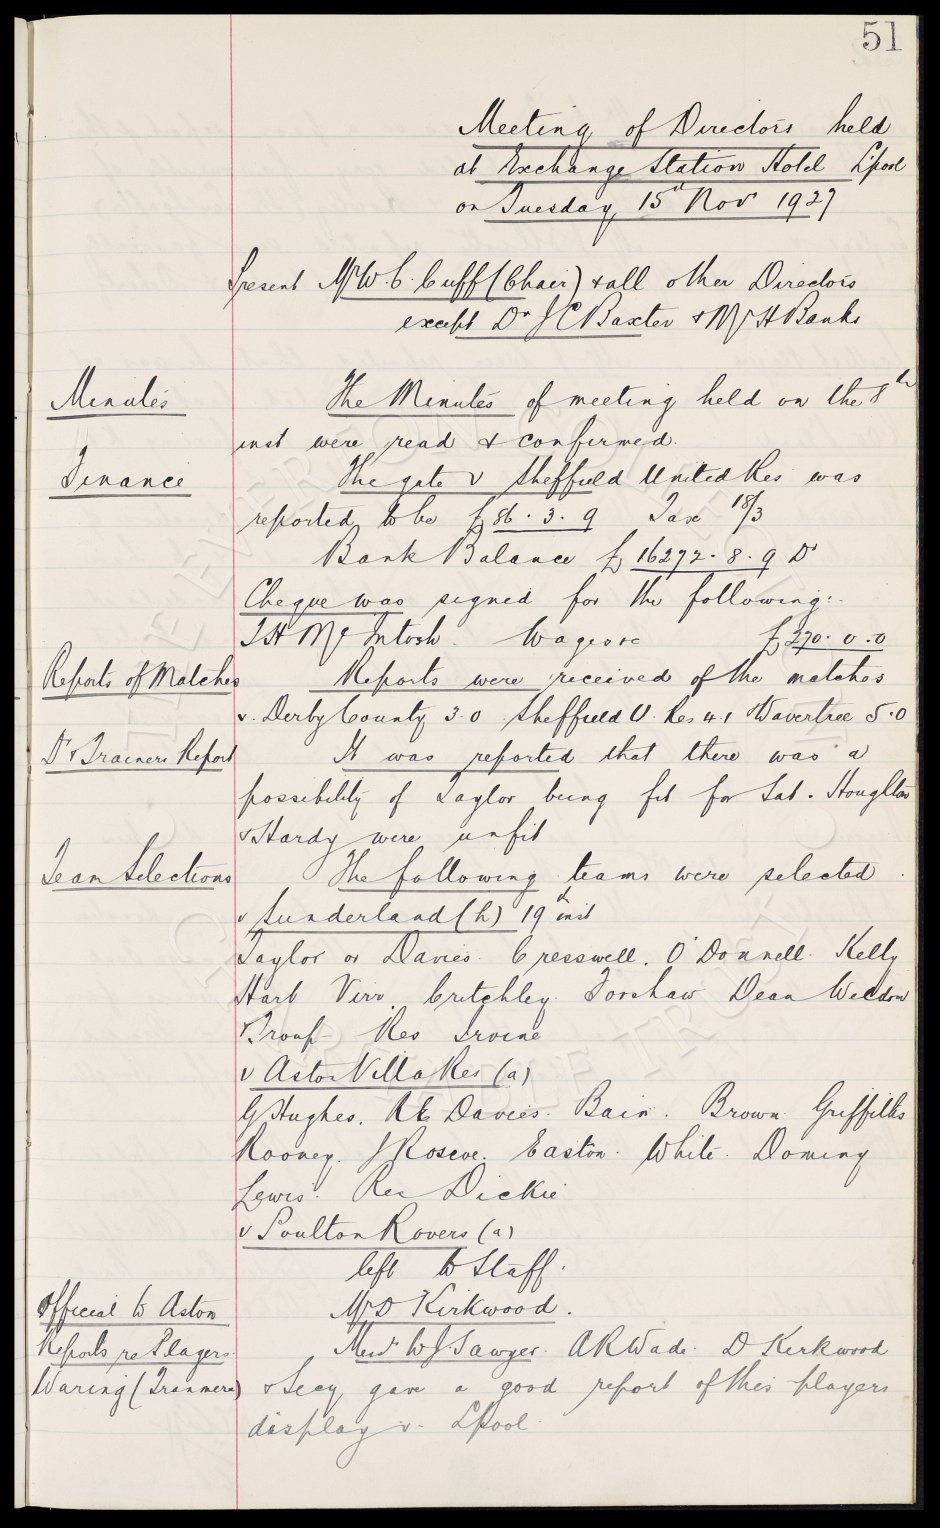 51
Meeting of Directors held
at Exchange Station Hotel L'pool
on Tuesday, 15th Nov 1927
Present Mr W.C. Cuff (Chair) & all other Directors
except Dr J C Baxter & Mr H Banks
Minutes The Minutes of meeting held on the 8th
inst were read & confirmed.
Finance The gate v Sheffield United Res was
reported to be £86.3.9 Tax 18/3
Bank Balance £16272.8.9 Dr
Cheque was signed for the following:-
T H McIntosh. Wages &c £270.0.0
Reports of Matches Reports were received of the matches
v. Derby County 3.0 Sheffield U. Res 4.1 & Wavertree 5.0
Dr & Trainers Report It was reported that there was a
possibility of Taylor being fit for Sat. Houghton
& Hardy were unfit
Team Selections The following teams were selected.
v Sunderland (h) 19th inst
Taylor or Davies. Cresswell. O'Donnell. Kelly
Hart Virr. Critchley. Forshaw Dean Weldon
& Troup - Res Irvine
v Aston Villa Res (a)
G Hughes. R E Davies. Bain. Brown. Griffiths
Rooney. J Roscoe. Easton. White. Dominy
Lewis. Res Dickie
v Poulton Rovers (a)
left to Staff.
Official to Aston Mr D Kirkwood.
Reports re Players. Messrs W J Sawyer. A R Wade. D Kirkwood
Waring (Tranmere) & Secy gave a good report of this players
display v. L'pool.
THE EVERTON COLLECTION CHARITABLE TRUST